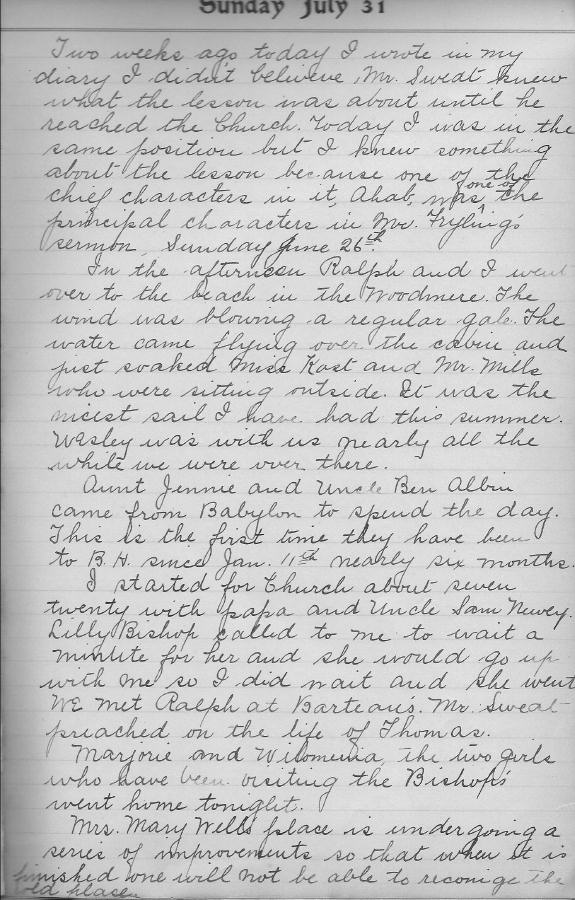 Sunday July 31
Two weeks ago today I wrote in my
diary I didn't believeve, Mr. Sweat knew
what the lesson was about until he
reached the Church. Today I was in the
same position but I knew something
about the lesson because one of the
chief characters in it, Ahab, was one of the
principal characters in Mr. Fryling's
sermon, Sunday June 26th.
In the afternoon Ralph and I went
over to the beach in the Woodmere. The
wind was blowing a regular gale. The
water came flying over the cabin and
just soaked Miss Kast and Mr. Mills
who were sitting outside. It was the
nicest sail I have had this summer.
Wesley was with us nearly all the
while we were over there.
Aunt Jennie and Uncle Ben Albin
came from Babylon to spend the day.
This is the first time they have been
to B.H. since Jan. 11th nearly six months.
I started for Church about seven
twenty with papa and Uncle Sam Newey.
Lilly Bishop called to me to wait a
minute for her and she would go up
with me so I did wait and she went
We met Ralph at Barteaus. Mr. Sweat
preached on the life of Thomas.
Marjorie and Wilomenia, the two girls
who have been visiting the Bishops'
went home tonight.
Mrs. Mary Wells place is undergoing a
series of improvements so that when it is
finished one will not be able to reconige the
old place.